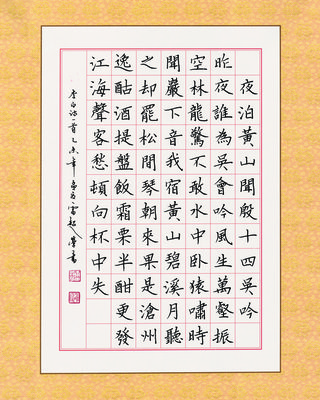 夜泊黃山聞殷十四吳吟
昨夜誰為吳會吟風生萬壑振
空林龍驚不敢水中卧猿嘯時
聞巖下音我宿黃山碧溪月聽
之却罷松間琴朝來果是滄州
逸酤酒提盤飯霜栗半酣更發
江海聲客愁頓向杯中失
李白诗一首